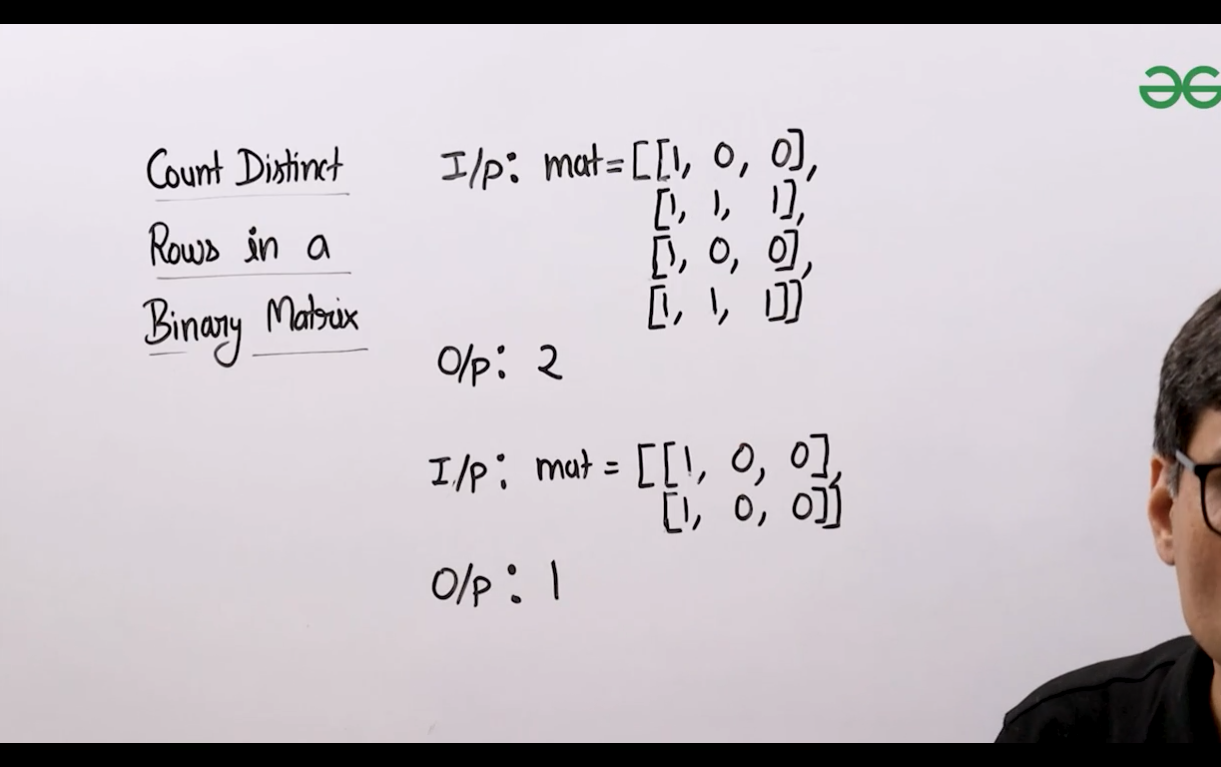 Count Distinct
Rows in a
Binary Matrix
I/p: mat=[[1, 0, 0],
[1, 1, 1],
[1, 0, 0],
[1, 1, 1]]
O/p: 2
I/p: mat = [[1, 0, 0],
[1, 0, 0]]
O/p: 1